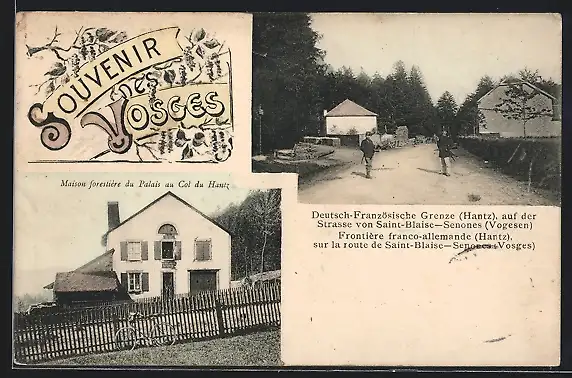 SOUVENIR
des
VOSGES
Maison forestière du Palais au Col du Hantz
Deutsch-Französische Grenze (Hantz), auf der
Strasse von Saint-Blaise—Senones (Vogesen)
Frontière franco-allemande (Hantz),
sur la route de Saint-Blaise—Senones (Vosges)